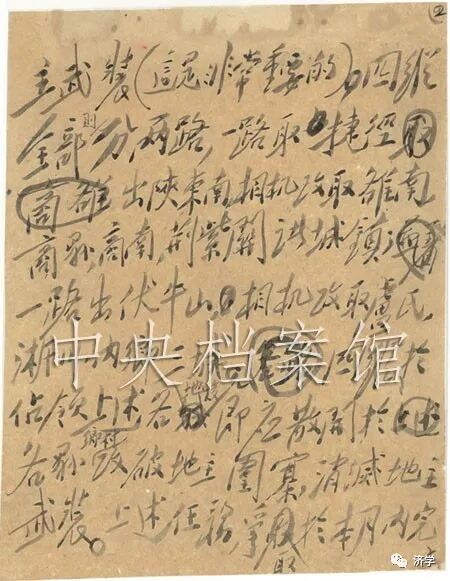 ②
主武装(這是非常重要的)。四縱
全部則分兩路,一路取捷徑取
商雒出陝東南,相机攻取雒南,
商縣,商南,荆紫關諸城鎮,
一路出伏牛山,相机攻取盧氏,
淅川,内鄉
中央档案馆
佔領上述各地後即应散開於上述
各縣鄉村攻破地主圍寨,消滅地主
武装。上述任務,爭取於本月内完
济学